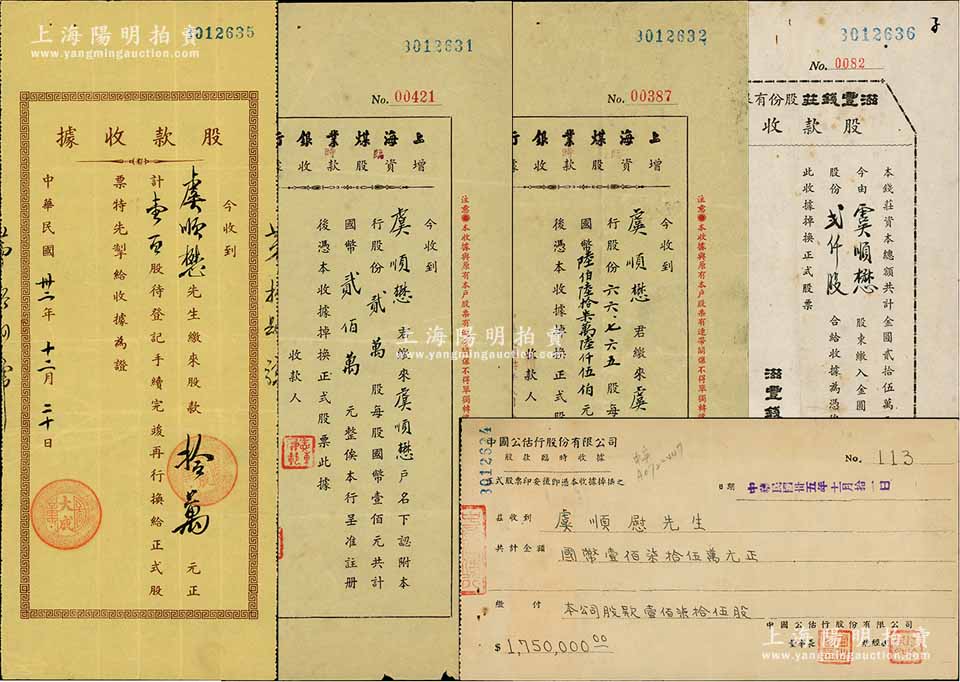 上海陽明拍賣
www.yangmingauction.com
3012635
股款收據
今收到
虞順懋先生繳來股款拾萬元正
計壹百股待登記手續完竣再行換給正式股
票特先掣給收據為證
中華民國卅二年十二月二十日
大成
3012631
No. 00421
上海煤業銀行
增資股款臨時收據
今收到
虞順懋君繳來虞順懋戶名下認附本
行股份貳萬股每股國幣壹佰元共計
國幣貳佰萬元整俟本行呈准註冊
後憑本收據掉換正式股票此據
收款人
3012632
No. 00387
上海煤業銀行
增資股款臨時收據
注意●本收據與原有本戶股票有連帶關係不得單獨轉讓
今收到
虞順懋君繳來虞
行股份六六、七六五股每
國幣陸伯陸拾柒萬陸仟伍伯元
後憑本收據掉換正式股
收款人
注意●本收據與原有本戶股票有連帶關係不得單獨轉
3012636
No. 0082
滋豐錢莊股份有
股款收
本錢莊資本總額共計金圓貳拾伍萬
今由虞順懋股東繳入金圓
股份貳仟股合給收據為憑俟
此收據掉換正式股票
滋豐錢
3012634
中國公估行股份有限公司
股款臨時收據
正式股票印妥後即憑本收據掉換之
No. 113
日期 中華民國卅五年十一月拾一日
茲收到 虞順慰先生
共計金額 國幣壹佰柒拾伍萬元正
繳付 本公司股款壹佰柒拾伍股
中國公估行股份有限公司
$ 1,750,000.00
董事長 總經理
上海陽明拍賣
www.yangmingauction.com
上海陽明拍賣
www.yangmingauction.com